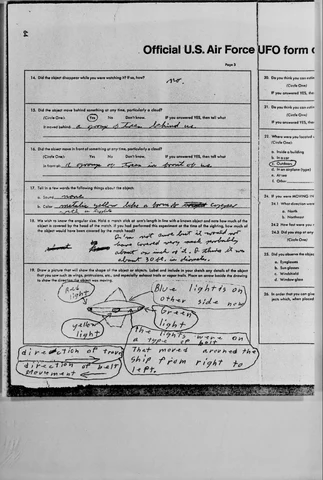 Official U.S. Air Force UFO form
Page 3
14. Did the object disappear while you were watching it? If so, how?
no.
15. Did the object move behind something at any time, particularly a cloud?
(Circle One): Yes No Don't know. If you answered YES, then tell what
it moved behind: a group of trees behind us.
16. Did the object move in front of something at any time, particularly a cloud?
(Circle One): Yes No Don't know. If you answered YES, then tell what
in front of: a group of trees in front of us
17. Tell in a few words the following things about the object:
a. Sound none
b. Color
18. We wish to know the angular size. Hold a match stick at arm's length in line with a known object and note how much of the
object is covered by the head of the match. If you had performed this experiment at the time of the sighting, how much of
the object would have been covered by the match head?
19. Draw a picture that will show the shape of the object or objects. Label and include in your sketch any details of the object
that you saw such as wings, protrusions, etc., and especially exhaust trails or vapor trails. Place an arrow beside the drawing
to show the direction the object was moving.
Red light
Blue lights on
other side now
Green
light
yellow
light
the lights were on
a type of belt
That moved around the
ship from right to
left.
direction of travel
direction of belt
movement
20. Do you think you can
(Circle One)
If you answered YES,
21. Do you think you can
(Circle One)
If you answered YES,
22. Where were you located
(Circle One):
a. Inside a building
b. In a car
c. Outdoors
d. In an airplane (type)
e. At sea
f. Other
24. If you were MOVING
24.1 What direction were
a. North
b. Northeast
24.2 How fast were you
24.3 Did you stop at any
(Circle One)
25. Did you observe the object
a. Eyeglasses
b. Sun glasses
c. Windshield
d. Window glass
26. In order that you can give